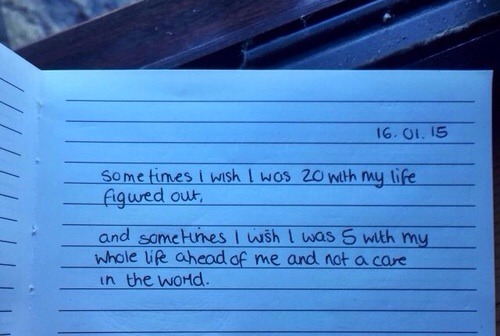 16.01.15
sometimes I wish I was 20 with my life
figured out,
and sometimes I wish I was 5 with my
whole life ahead of me and not a care
in the world.